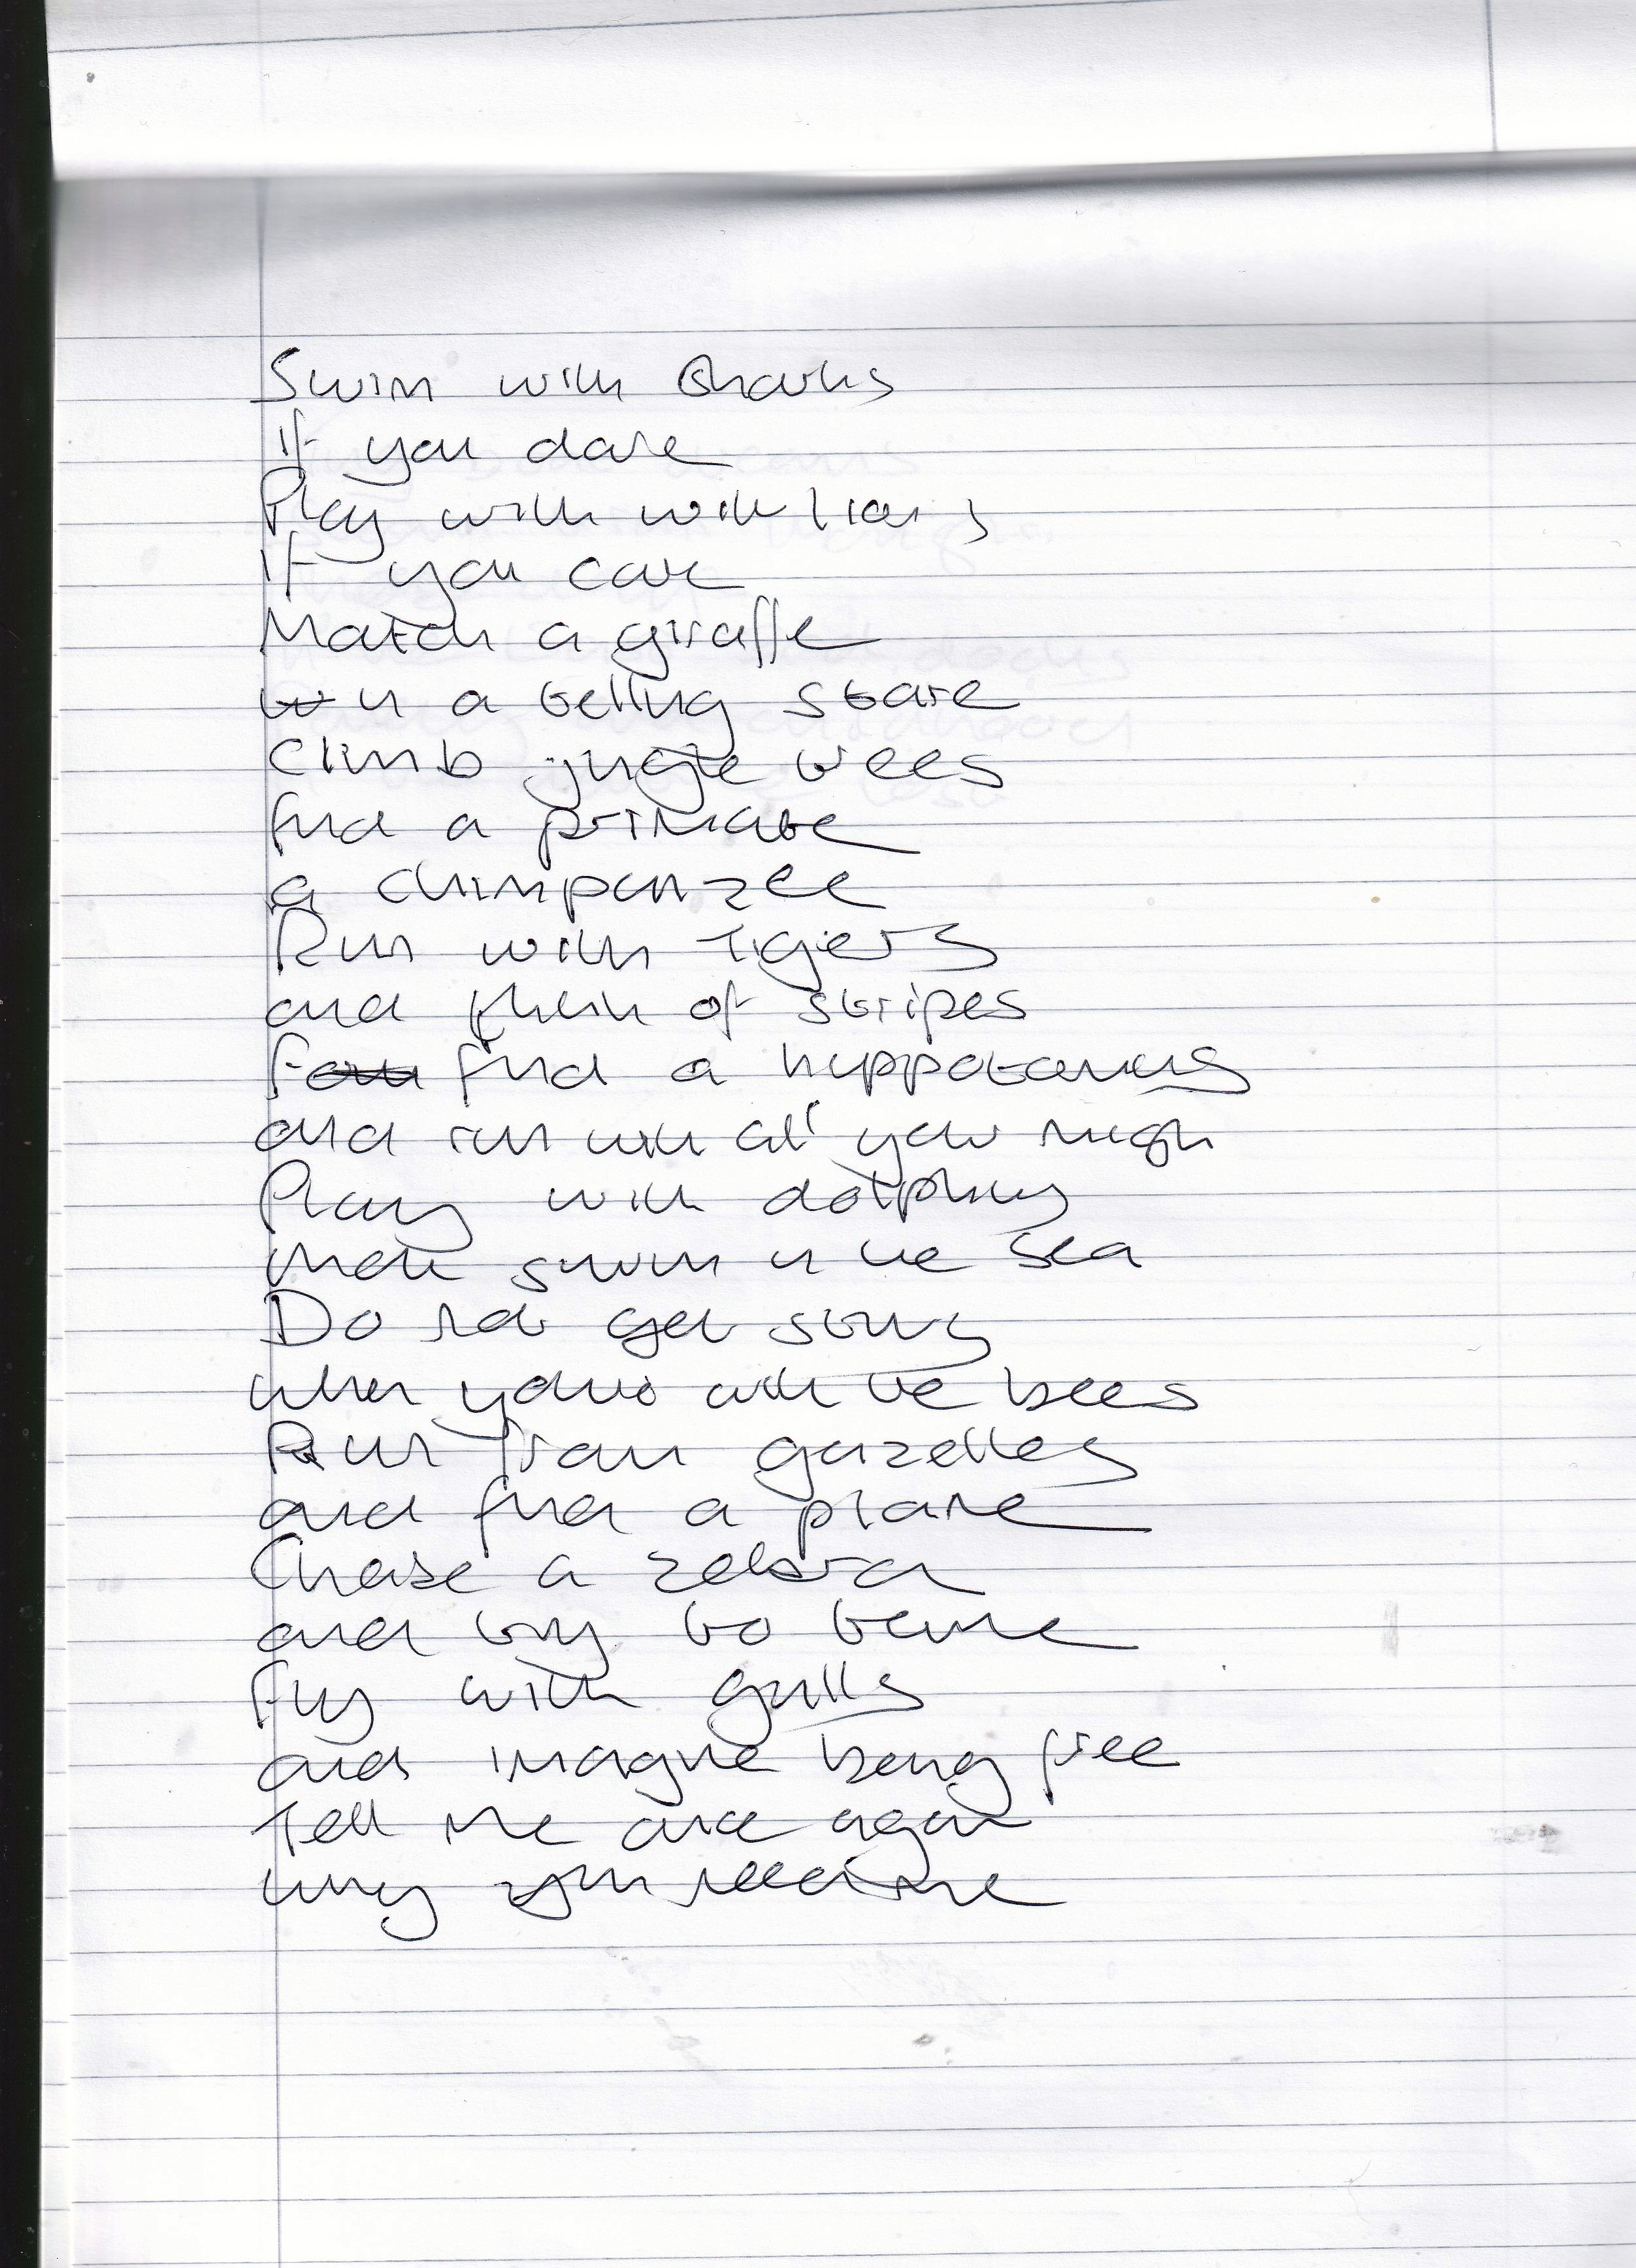 Swim with Sharks
If you dare
Play with with lions
If you care
Match a giraffe
in a telling stare
Climb jungle trees
find a primate
a chimpanzee
Run with Tigers
and think of stripes
find a hippotamus
and run with all your
Play with dolphins
swim in the sea
Do not get stung
when your with the bees
Run from gazelles
and find a plane
Chase a zebra
and try to tame
Fly with gulls
and imagine being free
Tell me once again
why you